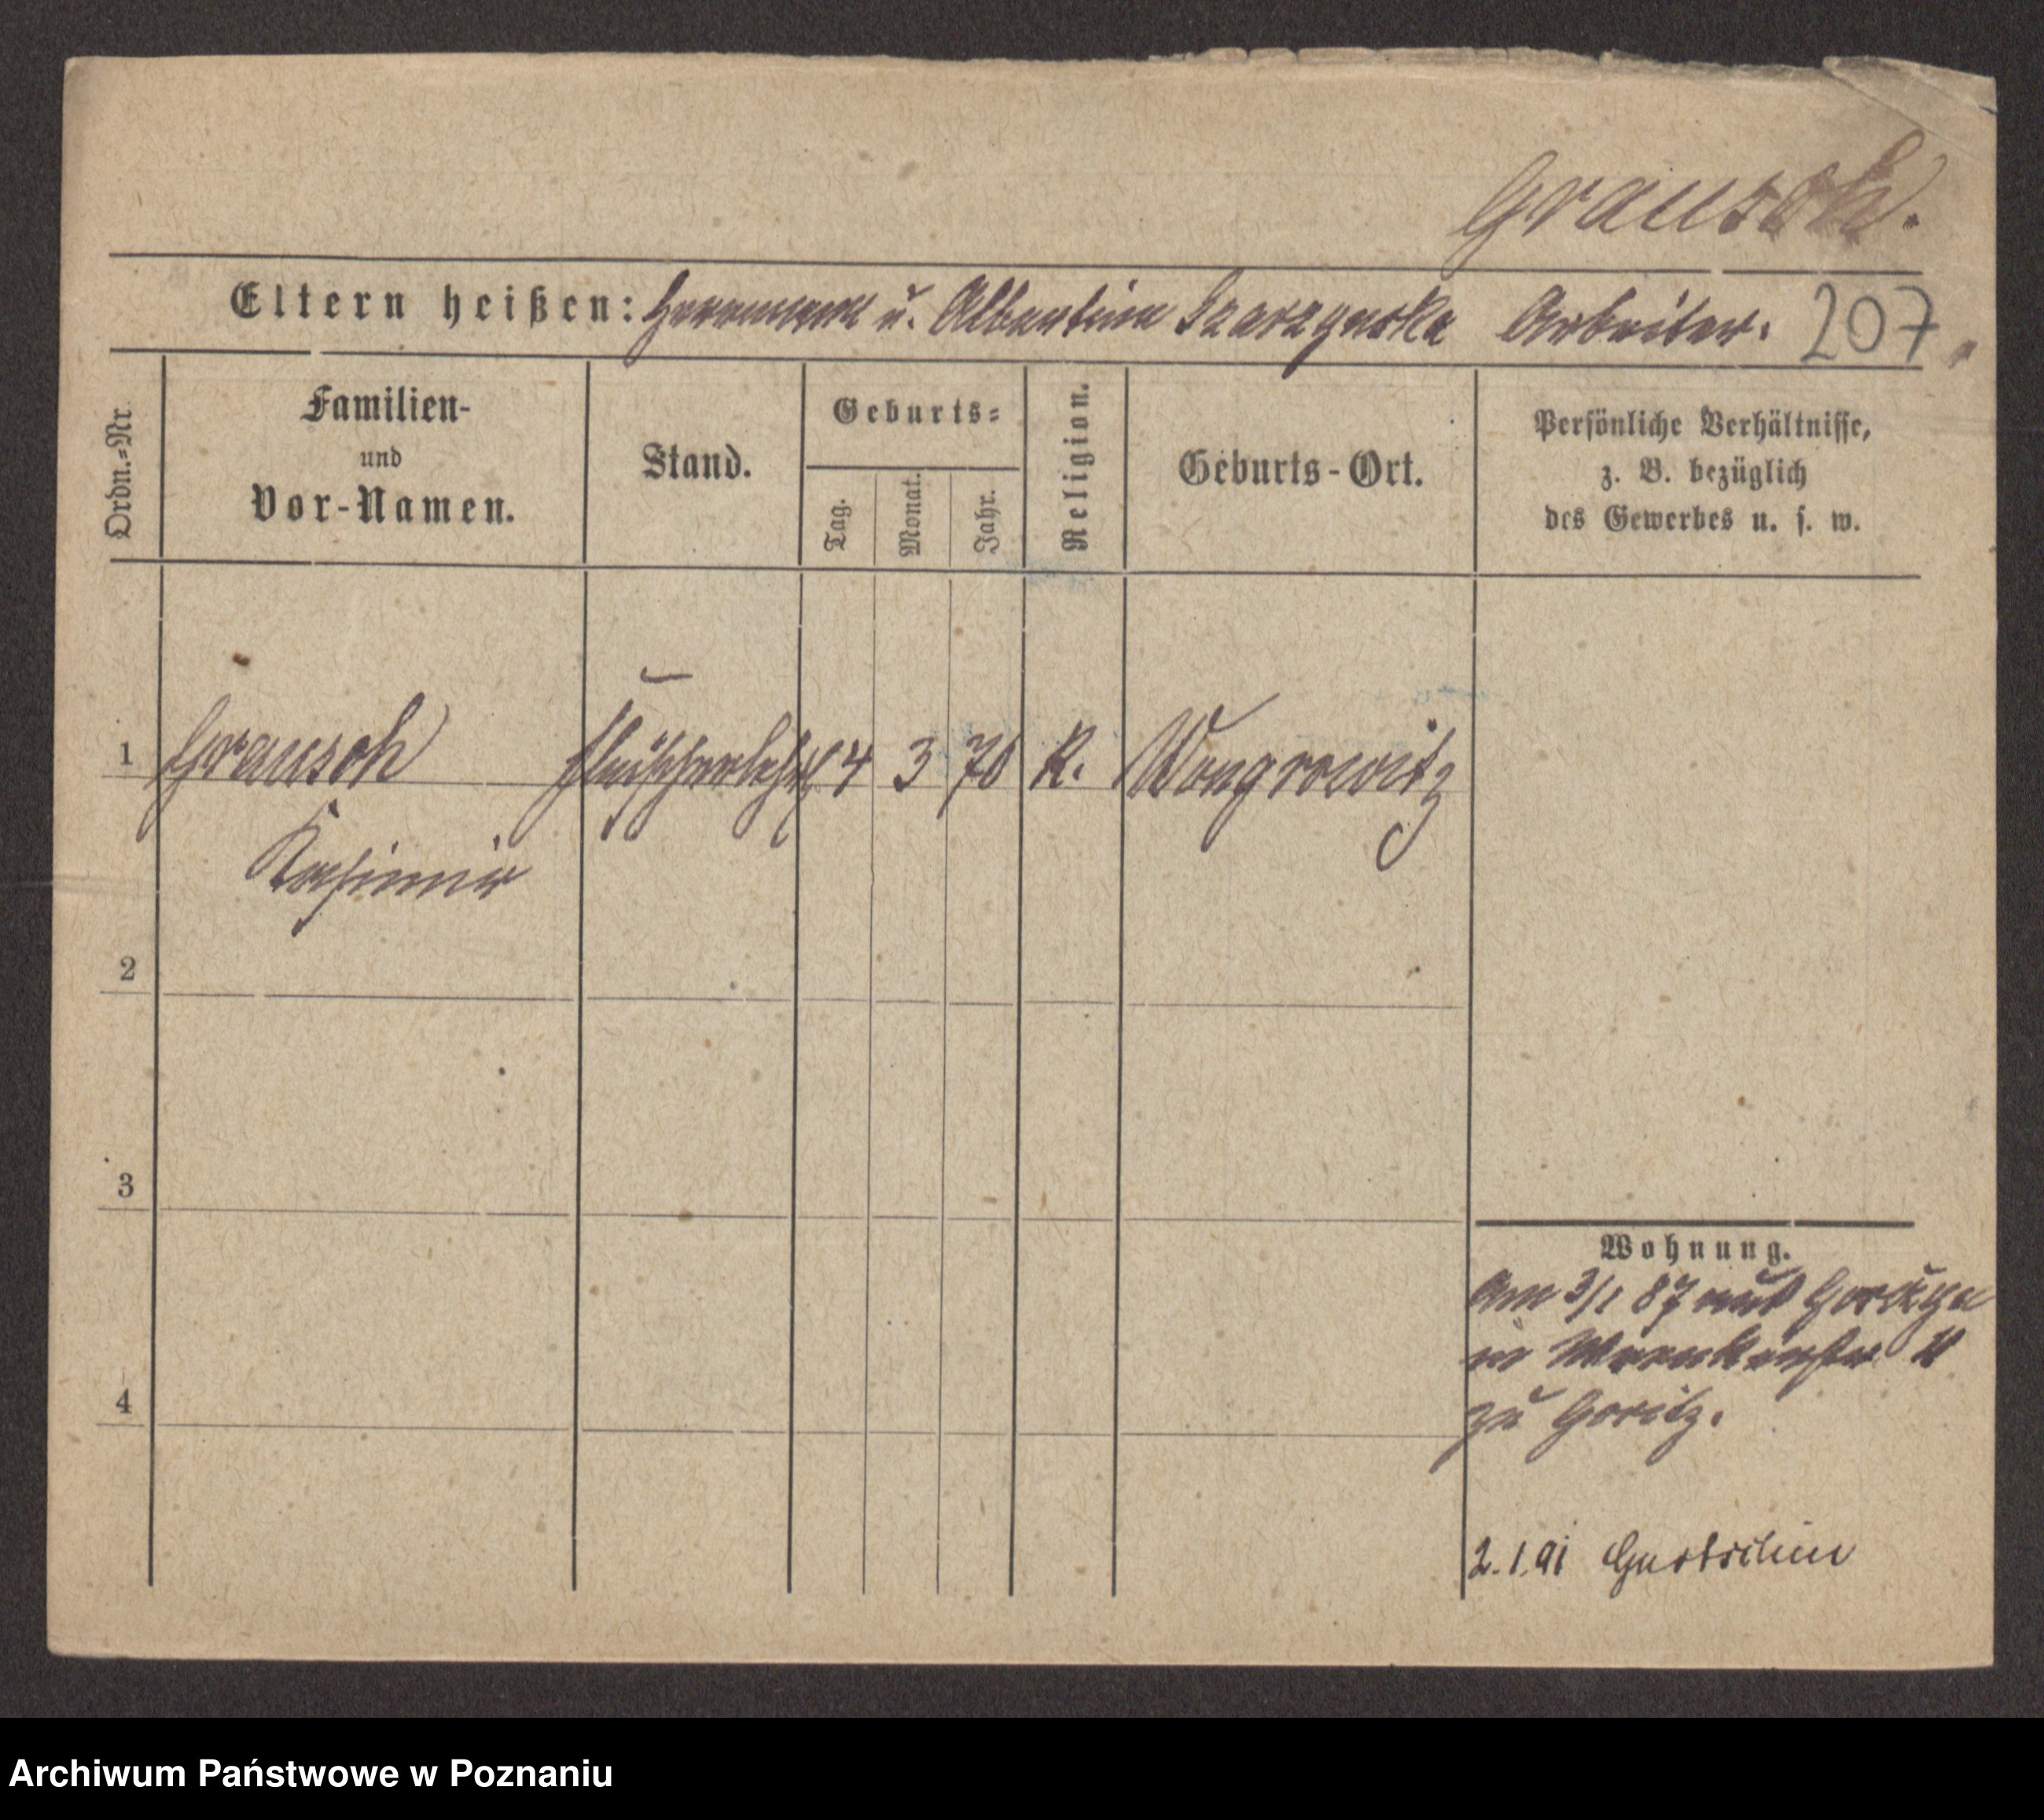 Grausch.
Eltern heißen: Herrmann u. Albertine Szarzynska Arbeiter. 207
Ordn.-Nr.
Familien-
und
Vor-Namen.
Stand.
Geburts-
Tag.
Monat.
Jahr.
Religion.
Geburts-Ort.
Persönliche Verhältnisse,
z. B. bezüglich
des Gewerbes u. s. w.
1 Grausch Fleischerlehrl 4 3 70 K. Wongrowitz
Kasimir
2
3
4
Wohnung.
Am 3/1 87 aus
in
zu Goritz.
2. 1. 91 Gurtschin
Archiwum Państwowe w Poznaniu